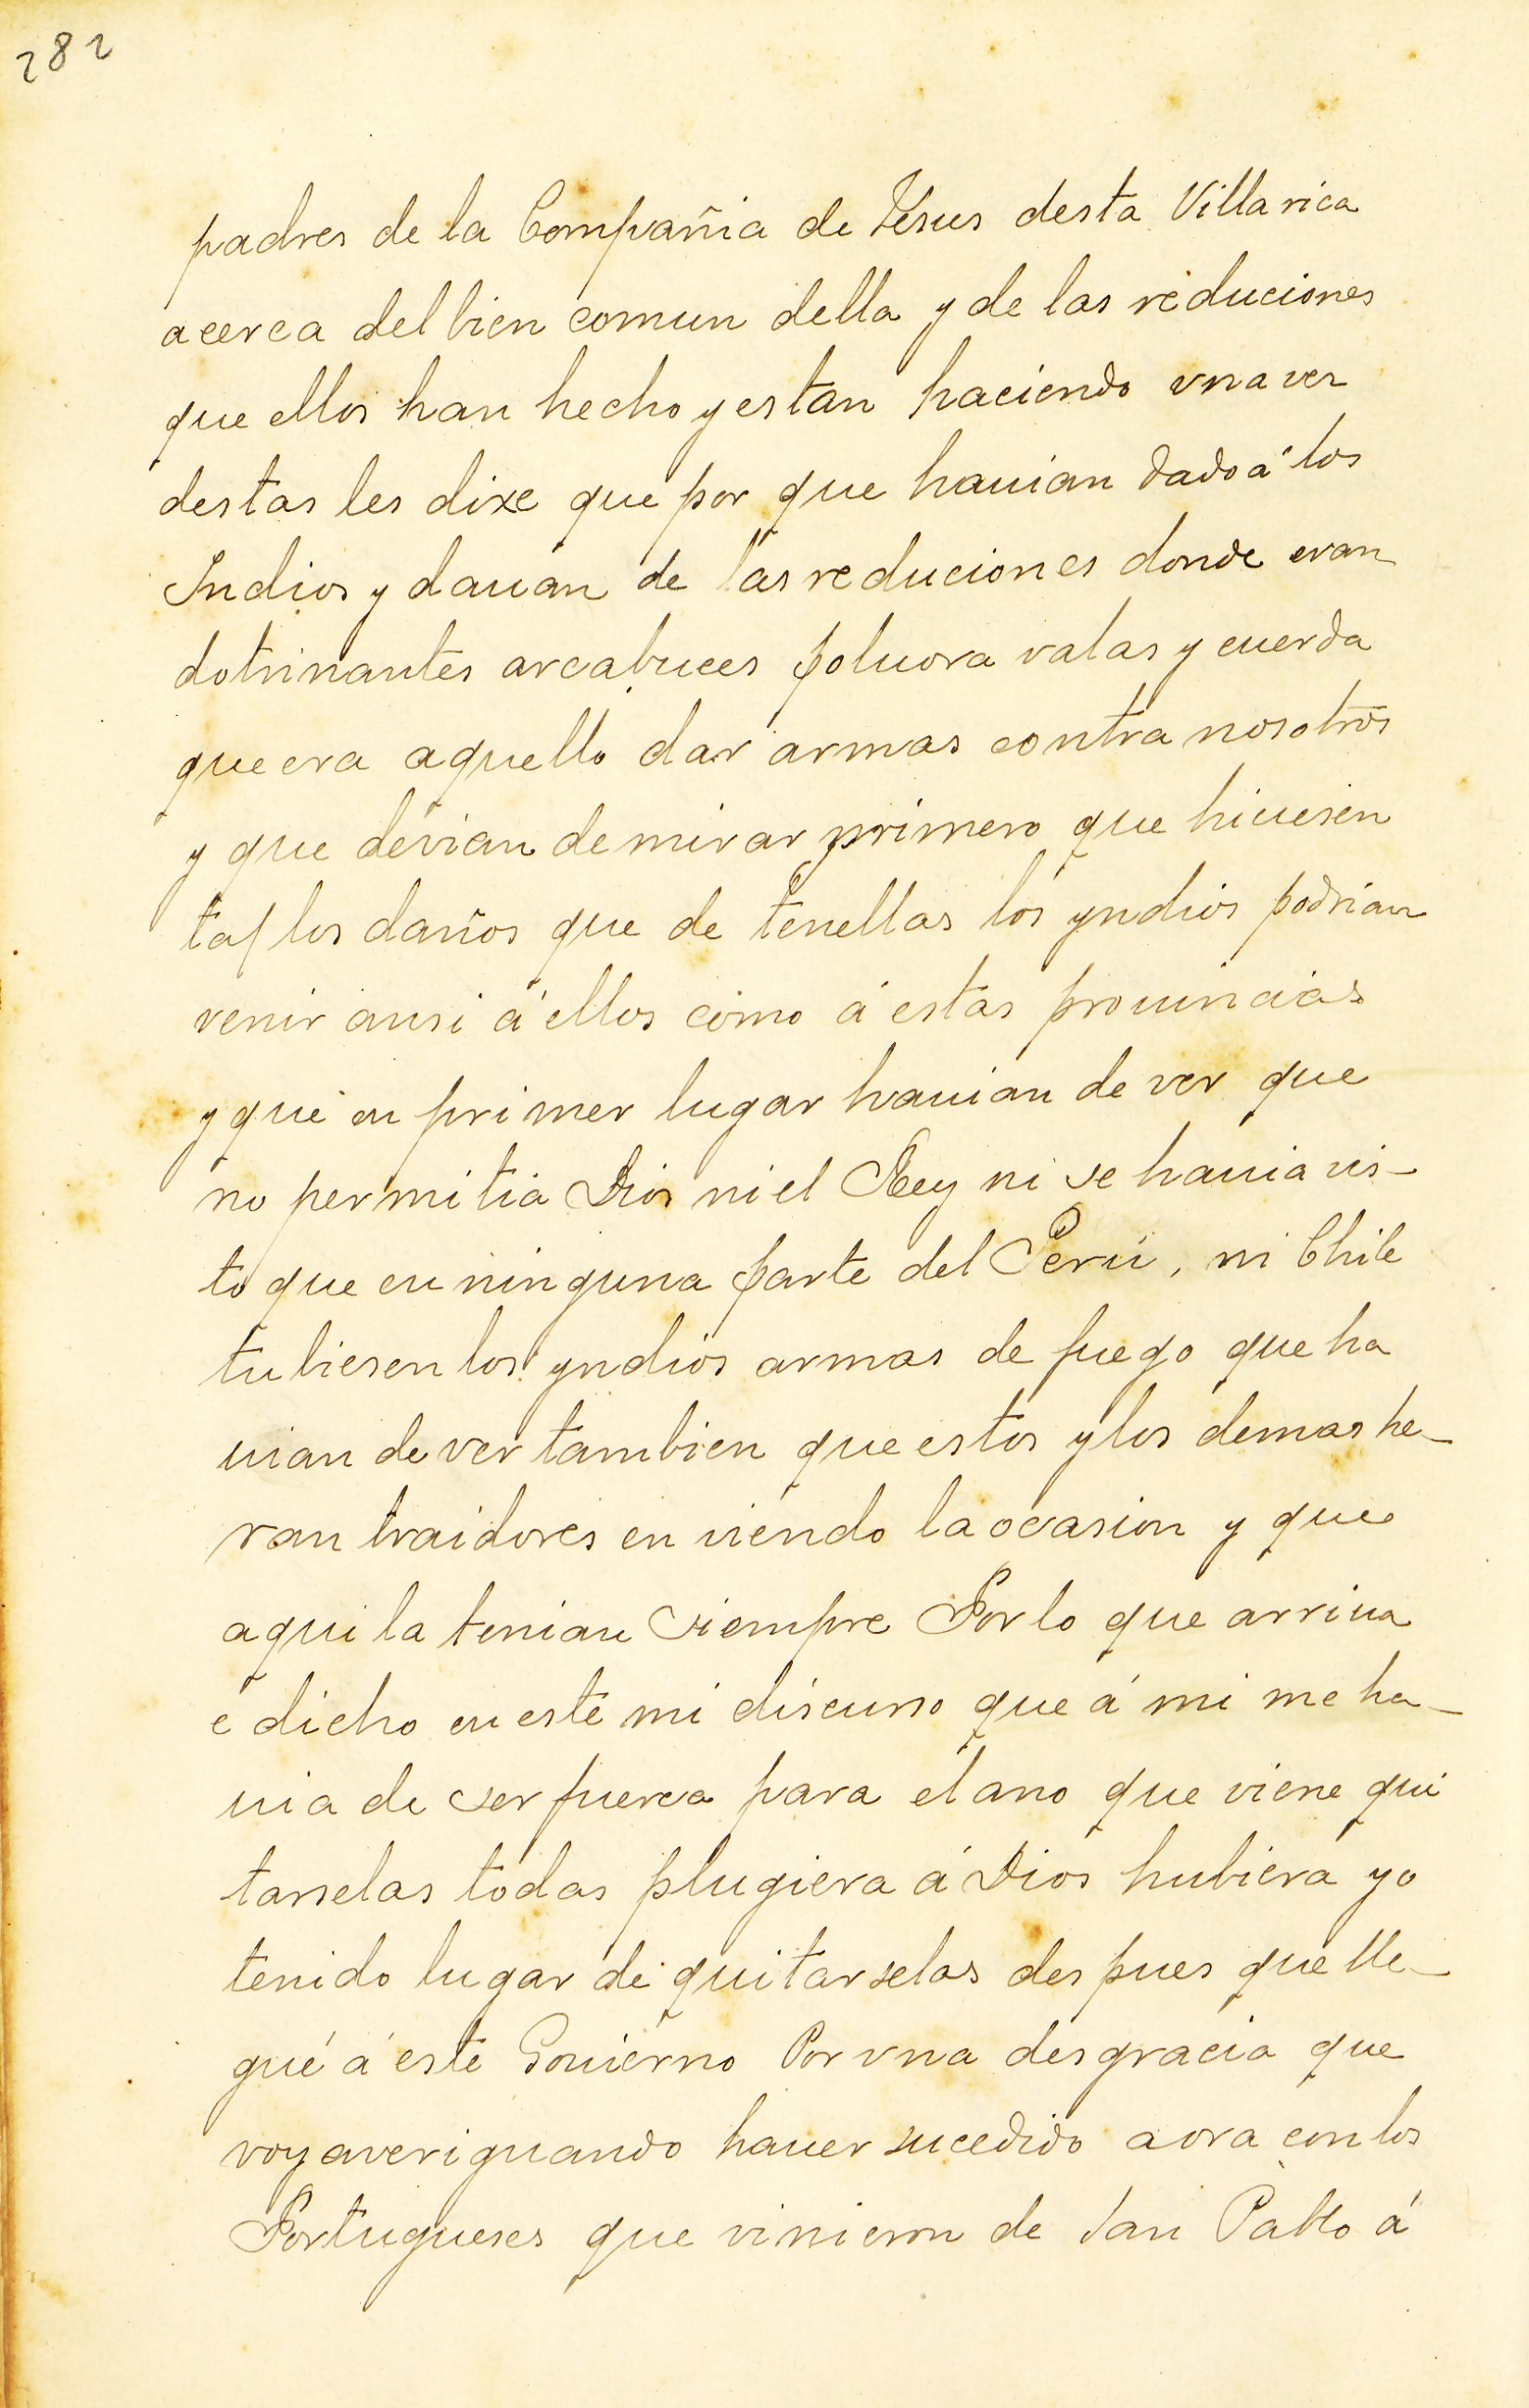 282
padres de la Compañia de Jesus desta Villa rica
acerca del bien comun della y de las reduciones
que ellos han hecho y estan haciendo vna vez
destas les dixe que por que hauian dado á los
Indios y dauan de las reduciones donde eran
dotrinantes arcabuces poluora valas y cuerda
que era aquello dar armas contra nosotros
y que devian de mirar primero que hiciesen
tal los daños que de tenellas los yndios podrian
venir ansi á ellos como á estas prouincias
y que en primer lugar hauian de ver que
no permitia Dios ni el Rey ni se hauia vis-
to que en ninguna parte del Perú, ni Chile
tubiesen los yndios armas de fuego que ha
uian de ver tambien que estos y los demas he-
ran traidores en viendo la ocasion y que
aqui la tenian siempre Por lo que arriua
e dicho en este mi discurso que á mi me ha-
uia de ser fuerza para el ano que viene qui
tarselas todas plugiera á Dios hubiera yo
tenido lugar de quitarselas des pues que lle-
gué á este Gouierno Por vna desgracia que
voy averiguando hauer sucedido aora con los
Portugueses que vinieron de San Pablo á